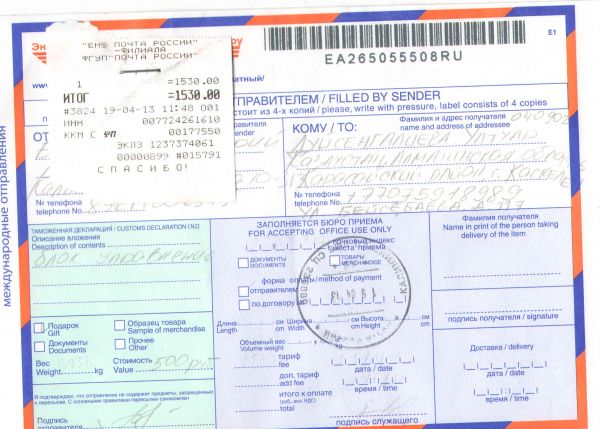 "EMS ПОЧТА РОССИИ"
-ФИЛИАЛА
ФГУП"ПОЧТА РОССИИ"
1 =1530.00
ИТОГ =1530.00
#3824 19-04-13 11:48 001
ИНН 007724261610
ККМ С 00177550
ЭКЛЗ 1237374061
00008899 #015791
СПАСИБО!
EA265055508RU
E1
www.
платный/
ОТПРАВИТЕЛЕМ / FILLED BY SENDER
стоит из 4-х копий / please, write with pressure, label consists of 4 copies
международные отправления
ОТ
отправителя
of sender
КОМУ / TO:
Фамилия и адрес получателя
name and address of addressee
040902
Казахстан
район г. Каскелен
№ телефона
telephone No.
№ телефона
telephone No.
+77025918989
ТАМОЖЕННАЯ ДЕКЛАРАЦИЯ / CUSTOMS DECLARATION CN22
Описание вложения
Description of contents
блок управления
Подарок
Gift
Образец товара
Sample of merchandise
Документы
Documents
Прочее
Other
Вес
Weight kg
Стоимость
Value
500 руб
Я подтверждаю, что отправление не содержит предметы, запрещенные
к пересылке. С основными правилами пересылки ознакомлен
Подпись
отправителя
ЗАПОЛНЯЕТСЯ БЮРО ПРИЕМА
FOR ACCEPTING OFFICE USE ONLY
почтовый индекс
места приема
ДОКУМЕНТЫ
DOCUMENTS
ТОВАРЫ
MERCHANDISE
форма оплаты / method of payment
отправителем
по договору №
19 04 13
Длина
Length
см
cm
Ширина
Width
см
cm
Высота
Height
Объемный вес
Volume weight
тариф
fee
доп. тариф
add fee
итого к оплате
(руб., вкл. НДС)
total
дата / date
время / time
подпись служащего
Фамилия получателя
Name in print of the person taking
delivery of the item
подпись получателя / signature
Доставка / delivery
дата / date
время / time